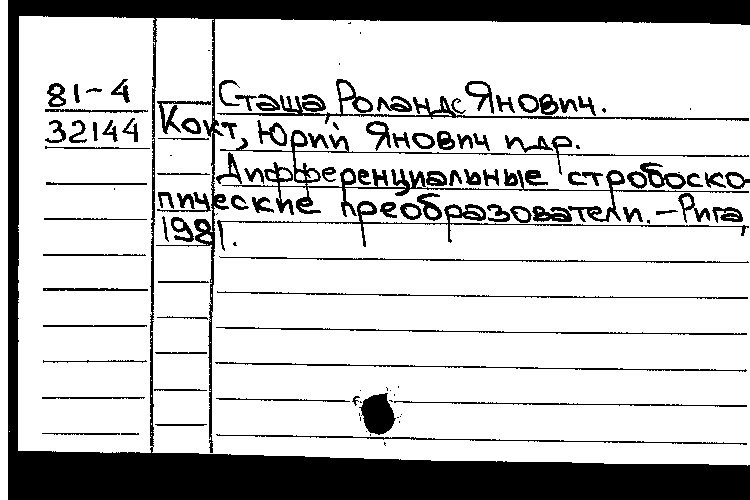 81-4 Сташа, Роландс Янович.
32144 Кокт, Юрий Янович и др.
Дифференциальные стробоско-
пические преобразователи. - Рига,
1981.